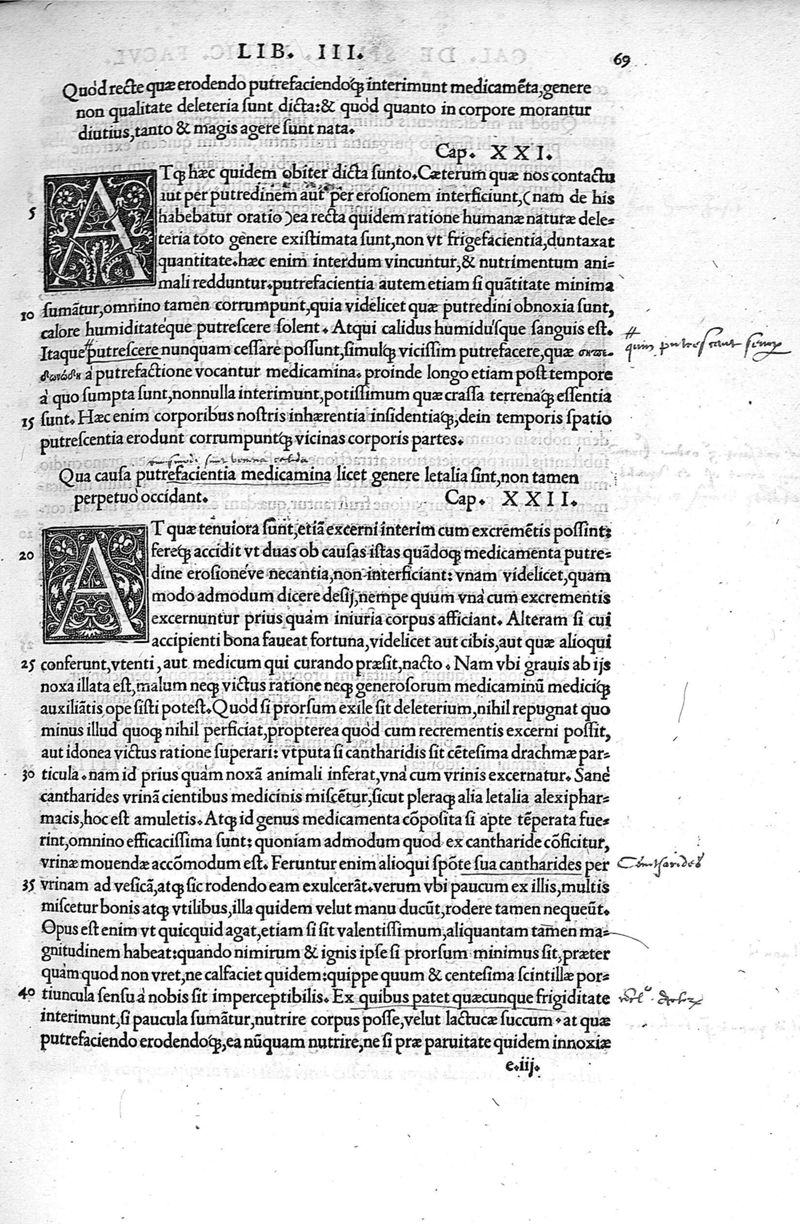 LIB. III. 69
Quód recte quæ erodendo putrefaciendoq̃ interimunt medicamẽta,genere
non qualitate deleteria sunt dicta:& quód quanto in corpore morantur
diutius,tanto & magis agere sunt nata.
Cap. XXI.
ATq̃ hæc quidem obiter dicta sunto.Cæterum quæ nos contactu
aut per putredinem aut per erosionem interficiunt,(nam de his
5 habebatur oratio)ea recta quidem ratione humanæ naturæ dele=
teria toto genere existimata sunt,non vt frigefacientia,duntaxat
quantitate.hæc enim interdum vincuntur,& nutrimentum ani=
mali redduntur.putrefacientia autem etiam si quãtitate minima
10 sumãtur,omnino tamen corrumpunt,quia videlicet quæ putredini obnoxia sunt,
calore humiditateque putrescere solent. Atqui calidus humidusque sanguis est.
Itaque putrescere nunquam cessare possunt,simulq̃ vicissim putrefacere,quæ
à putrefactione vocantur medicamina. proinde longo etiam post tempore
à quo sumpta sunt,nonnulla interimunt,potissimum quæ crassa terrenaq̃ essentia
15 sunt. Hæc enim corporibus nostris inhærentia insidentiaq̃,dein temporis spatio
putrescentia erodunt corrumpuntq̃ vicinas corporis partes.
Qua causa putrefacientia medicamina licet genere letalia sint,non tamen
perpetuo occidant. Cap. XXII.
AT quæ tenuiora sunt,etiã excerni interim cum excremẽtis possint:
20 fereq̃ accidit vt duas ob causas istas quãdoq̃ medicamenta putre=
dine erosionéve necantia,non interficiant: vnam videlicet,quam
modo admodum dicere desij,nempe quum vná cum excrementis
excernuntur prius quám iniuria corpus afficiant. Alteram si cui
accipienti bona faueat fortuna,videlicet aut cibis,aut quæ alioqui
25 conferunt,vtenti, aut medicum qui curando præsit,nacto. Nam vbi grauis ab ijs
noxa illata est,malum neq̃ victus ratione neq̃ generosorum medicaminũ mediciq̃
auxiliãtis ope sisti potest.Quod si prorsum exile sit deleterium,nihil repugnat quo
minus illud quoq̃ nihil perficiat,propterea quód cum recrementis excerni possit,
aut idonea victus ratione superari: vtputa si cantharidis sit cẽtesima drachmæ par=
30 ticula. nam id prius quám noxã animali inferat,vná cum vrinis excernatur. Sané
cantharides vrinã cientibus medicinis miscẽtur,sicut pleraq̃ alia letalia alexiphar=
macis,hoc est amuletis.Atq̃ id genus medicamenta cõposita si apte tẽperata fue=
rint,omnino efficacissima sunt: quoniam admodum quod ex cantharide cõficitur,
vrinæ mouendæ accõmodum est. Feruntur enim alioqui spõte sua cantharides per
Cantharides
35 vrinam ad vesicã,atq̃ sic rodendo eam exulcerãt.verum vbi paucum ex illis,multis
miscetur bonis atq̃ vtilibus,illa quidem velut manu ducũt,rodere tamen nequeũt.
Opus est enim vt quicquid agat,etiam si sit valentissimum,aliquantam tamen ma=
gnitudinem habeat:quando nimirum & ignis ipse si prorsum minimus sit,præter
quám quod non vret,ne calfaciet quidem:quippe quum & centesima scintillæ por=
40 tiuncula sensu à nobis sit imperceptibilis. Ex quibus patet quæcunque frigiditate
interimunt,si paucula sumãtur,nutrire corpus posse,velut lactucæ succum. at quæ
putrefaciendo erodendoq̃,ea nũquam nutrire,ne si præ paruitate quidem innoxiæ
e.iij.